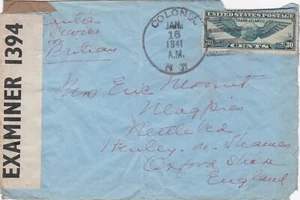 EXAMINER 1394
COLONIA
JAN
16
1941
A.M.
N Y
UNITED STATES POSTAGE
CENTS 30
Mrs Eric
Magpies
Nettlebed
Henley. on. Thames
Oxford Shire
England